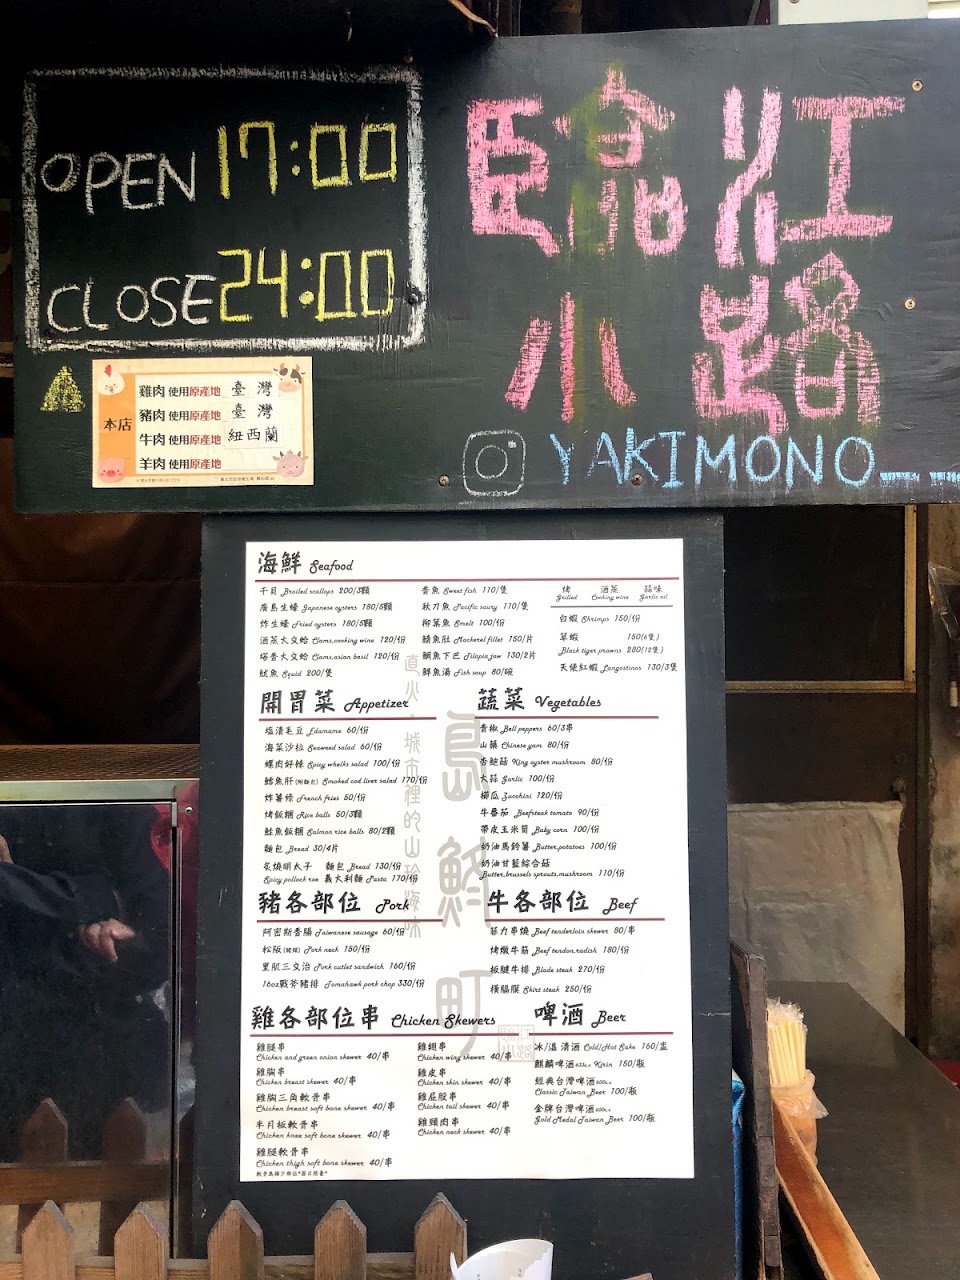 OPEN 17:00
CLOSE 24:00
臨江
小路
YAKIMONO_ _
本店
雞肉 使用原產地 臺灣
豬肉 使用原產地 臺灣
牛肉 使用原產地 紐西蘭
羊肉 使用原產地
海鮮 Seafood
干貝 Broiled scallops 200/3顆
廣島生蠔 Japanese oysters 180/5顆
炸生蠔 Fried oysters 180/5顆
酒蒸大文蛤 Clams,cooking wine 120/份
塔香大文蛤 Clams,asian basil 120/份
魷魚 Squid 200/隻
香魚 Sweet fish 110/隻
秋刀魚 Pacific saury 110/隻
柳葉魚 Smelt 100/份
鯖魚肚 Mackerel fillet 150/片
鯛魚下巴 Tilapia jaw 130/2片
鮮魚湯 Fish soup 80/碗
烤 酒蒸 蒜味
Grilled Cooking wine Garlic oil
白蝦 Shrimps 150/份
草蝦 150(6隻)
Black tiger prawns 280(12隻)
天使紅蝦 Langostinos 130/3隻
開胃菜 Appetizer
塩漬毛豆 Edamame 60/份
海菜沙拉 Seaweed salad 60/份
螺肉好辣 Spicy whelks salad 100/份
鱈魚肝(附麵包) Smoked cod liver salad 170/份
炸薯條 French fries 50/份
烤飯糰 Rice balls 50/3顆
鮭魚飯糰 Salmon rice balls 80/2顆
麵包 Bread 30/4片
炙燒明太子 麵包 Bread 130/份
Spicy pollock roe 義大利麵 Pasta 170/份
蔬菜 Vegetables
青椒 Bell peppers 60/3串
山藥 Chinese yam 80/份
杏鮑菇 King oyster mushroom 80/份
大蒜 Garlic 100/份
櫛瓜 Zucchini 120/份
牛番茄 Beefsteak tomato 90/份
帶皮玉米筍 Baby corn 100/份
奶油馬鈴薯 Butter,potatoes 100/份
奶油甘藍綜合菇
Butter,brussels sprouts,mushroom 110/份
豬各部位 Pork
阿密斯香腸 Taiwanese sausage 60/份
松阪(豬頸) Pork neck 150/份
里肌三文治 Pork cutlet sandwich 160/份
16oz戰斧豬排 Tomahawk pork chop 330/份
牛各部位 Beef
菲力串燒 Beef tenderloin skewer 80/串
烤燉牛筋 Beef tendon,radish 180/份
板腱牛排 Blade steak 270/份
橫膈膜 Skirt steak 250/份
雞各部位串 Chicken Skewers
雞腿串
Chicken and green onion skewer 40/串
雞胸串
Chicken breast skewer 40/串
雞胸三角軟骨串
Chicken breast soft bone skewer 40/串
半月板軟骨串
Chicken knee soft bone skewer 40/串
雞腿軟骨串
Chicken thigh soft bone skewer 40/串
雞翅串
Chicken wing skewer 40/串
雞皮串
Chicken skin skewer 40/串
雞屁股串
Chicken tail skewer 40/串
雞頸肉串
Chicken neck skewer 40/串
啤酒 Beer
冰/溫 清酒 Cold/Hot Sake 160/盅
麒麟啤酒 Kirin 150/瓶
經典台灣啤酒
Classic Taiwan Beer 100/瓶
金牌台灣啤酒
Gold Medal Taiwan Beer 100/瓶
直火。城市裡的山珍海味
島鱗町
臨江
小路